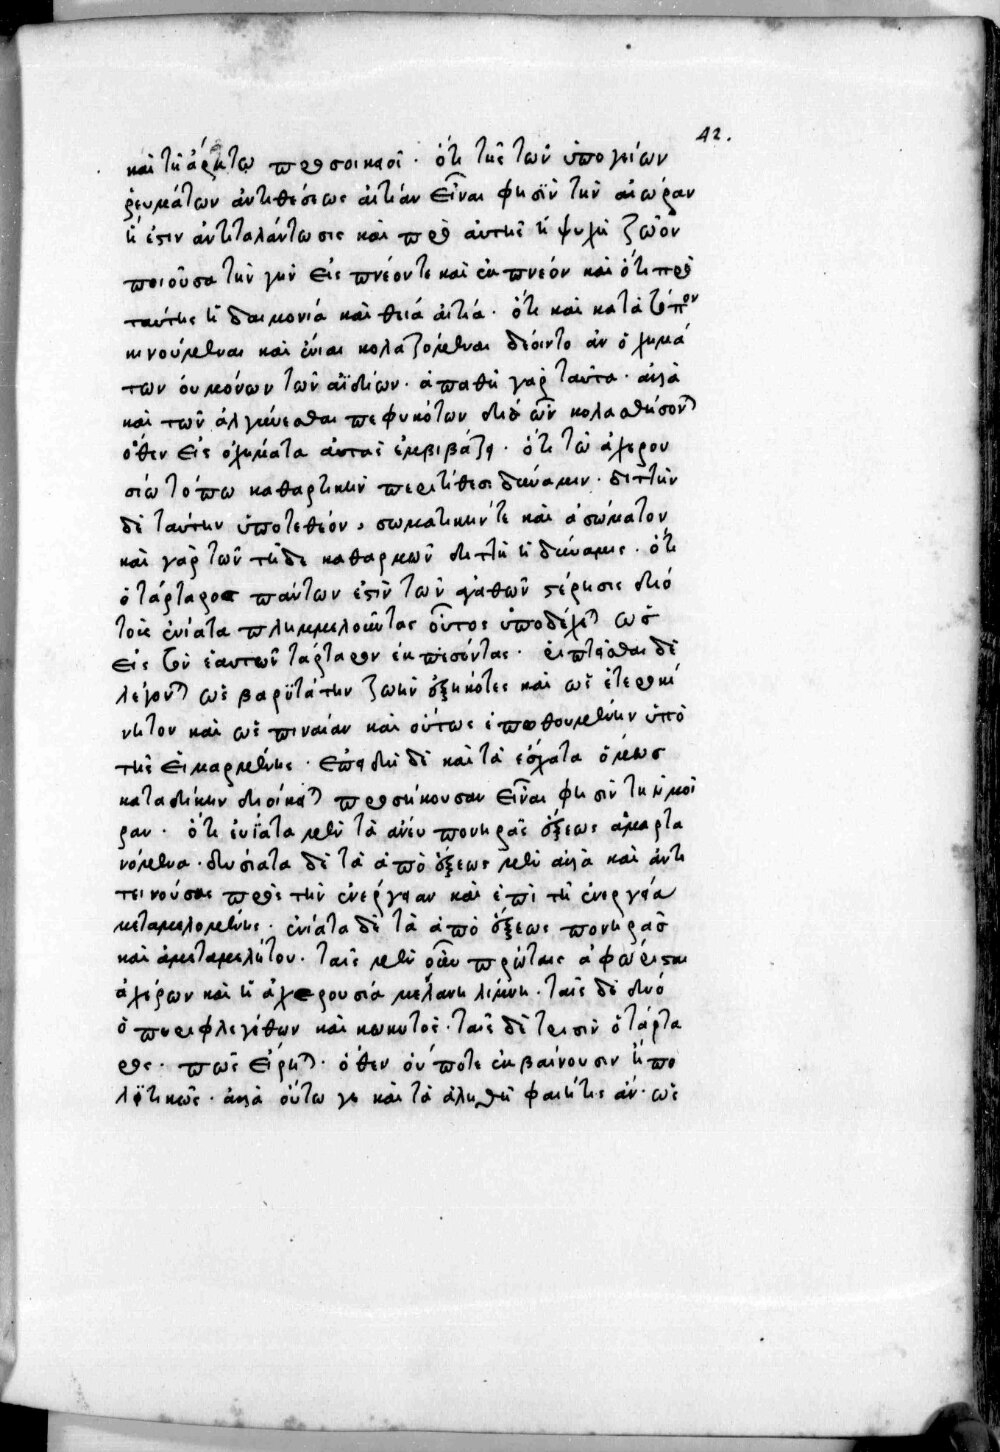 42.
καὶ τῆ ἄρκτω προσοικιοῖ · ὅτι τῆς τῶν ὑπογείων
ῥευμάτων ἀντιθέσεως αἰτίαν εἶναι φησὶν τὴν αἰώραν
ἥ ἐστιν ἀντιταλάντωσις καὶ πρὸ αὐτῆς ἡ ψυχὴ ζῶον
ποιοῦσα τὴν γῆν εἰσπνέον τε καὶ ἐκπνέον καὶ ὅτι πρὸ
ταύτης ἡ δαιμονία καὶ θεία αἰτία · ὅτι καὶ κατὰ τόπον
κινούμεναι καὶ ἔνιαι κολαζόμεναι δέοιντο ἂν ὀχημά
των οὐ μόνων τῶν ἀϊδίων · ἀπαθῆ γὰρ ταῦτα · ἀλλὰ
καὶ τῶν ἀλγύνεσθαι πεφυκότων διὸ ὧν κολασθήσονται
ὅθεν εἰς ὀχήματα αὐτὰς ἐμβιβάζει · ὅτι τῶ ἀχερου
σίω τόπω καθαρτικὴν περιτίθεσι δύναμιν · διττὴν
δὲ ταύτην ὑποτεθέον, σωματικήν τε καὶ ἀσώματον
καὶ γὰρ τῶν τῆδε καθαρμῶν διττὴ ἡ δύναμις · ὅτι
ὁ τάρταρος πάντων ἐστὶν τῶν ἀγαθῶν στέρησις διὸ
τοὺς ἀνίατα πλημμελοῦντας οὗτος ὑποδέχεται ὡς
εἰς τὸν ἑαυτῶν τάρταρον ἐκπεσόντας · ῥιπτεῖσθαι δὲ
λέγονται ὡς βαρυτάτην ζωὴν ἐξηκότες καὶ ὡς ἑτεροκί
νητον καὶ ὡς καὶ οὕτως ὑπὸ
τῆς εἱμαρμένης · ἐπειδὴ δὲ καὶ τὰ ἔσχατα ὅμως
κατὰ δίκην διοικεῖται προσήκουσαν εἶναι φησὶν τὴν μοῖ
ραν · ὅτι εὐΐατα μὲν τὰ ἄνευ πονηρᾶς ἕξεως ἁμαρτα
νόμενα · δυσίατα δὲ τὰ ἀπὸ ἕξεως μὲν ἀλλὰ καὶ ἀντι
τεινούσης πρὸς τὴν ἐνέργειαν καὶ ἐπὶ τῆ ἐνεργεία
μεταμελομένης · ἀνίατα δὲ τὰ ἀπὸ ἕξεως πονηρᾶς
καὶ ἀμεταμελήτου · ταῖς μὲν οὖν πρώταις ἀφώρισται
ἀχέρων καὶ ἡ ἀχερουσία λίμνη · ταῖς δὲ δυσὶ
ὁ πυριφλεγέθων καὶ κωκυτός · ταῖς δὲ τρισὶν ὁ τάρτα
ρος · πῶς εἴρηται · ὅθεν οὔποτε ἐκβαίνουσιν ἢ πο
λιτικῶς · ἀλλὰ οὕτω γε καὶ τὰ ἀληθῆ φαίη τις ἄν · ὡς